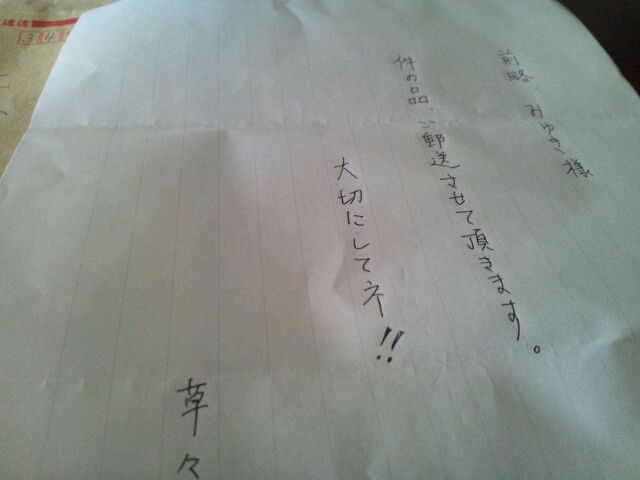 前略、みゆき様
件の品、ご郵送させて頂きます。
大切にしてネ!!
草々